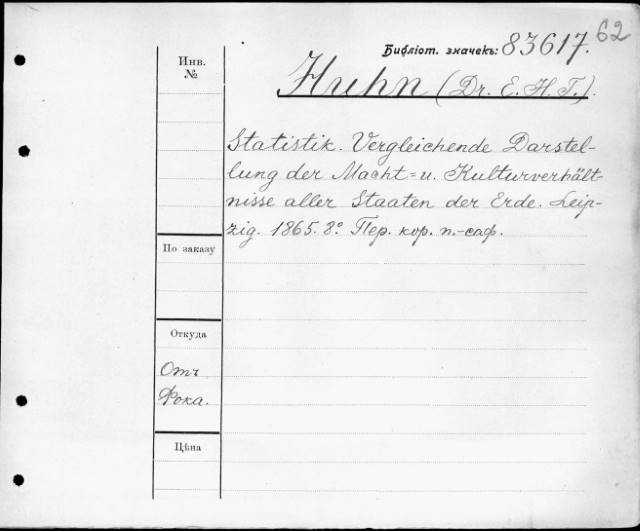 62
Библіот. значекъ: 83617.
Инв.
№
Huhn (Dr. E. H. T.).
Statistik. Vergleichende Darstel-
lung der Macht= u. Kulturverhält-
nisse aller Staaten der Erde. Leip-
zig. 1865. 8º. Пер. кор. п.-саф.
По заказу
Откуда
Отъ
Фока.
Цѣна